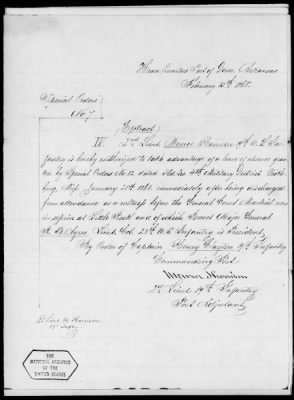 Head Quarters Post of Dover, Arkansas
February 15th 1868.
Special Orders
No. 7
Extract
IV 2nd Lieut. Morrison 19th U.S. In-
fantry is hereby authorized to take advantage of a leave of absence gran-
ted by Special Orders No. 12 dated Hdqrs 4th Military District Vicks-
burg, Miss. January 25th 1868. immediately after being discharged
from attendance as a witness before the General Court Martial now
in session at Little Rock and of which Brevet Major General
R. B. Ayres Lieut. Col. 28th U.S. Infantry is President.
By Order of Captain Henry Clayton 19th Infantry
Commanding Post
2nd Lieut. 19th Infantry
Post Adjutant
2d Lieut. Morrison
19th Infty
THE
NATIONAL ARCHIVES
OF THE
UNITED STATES